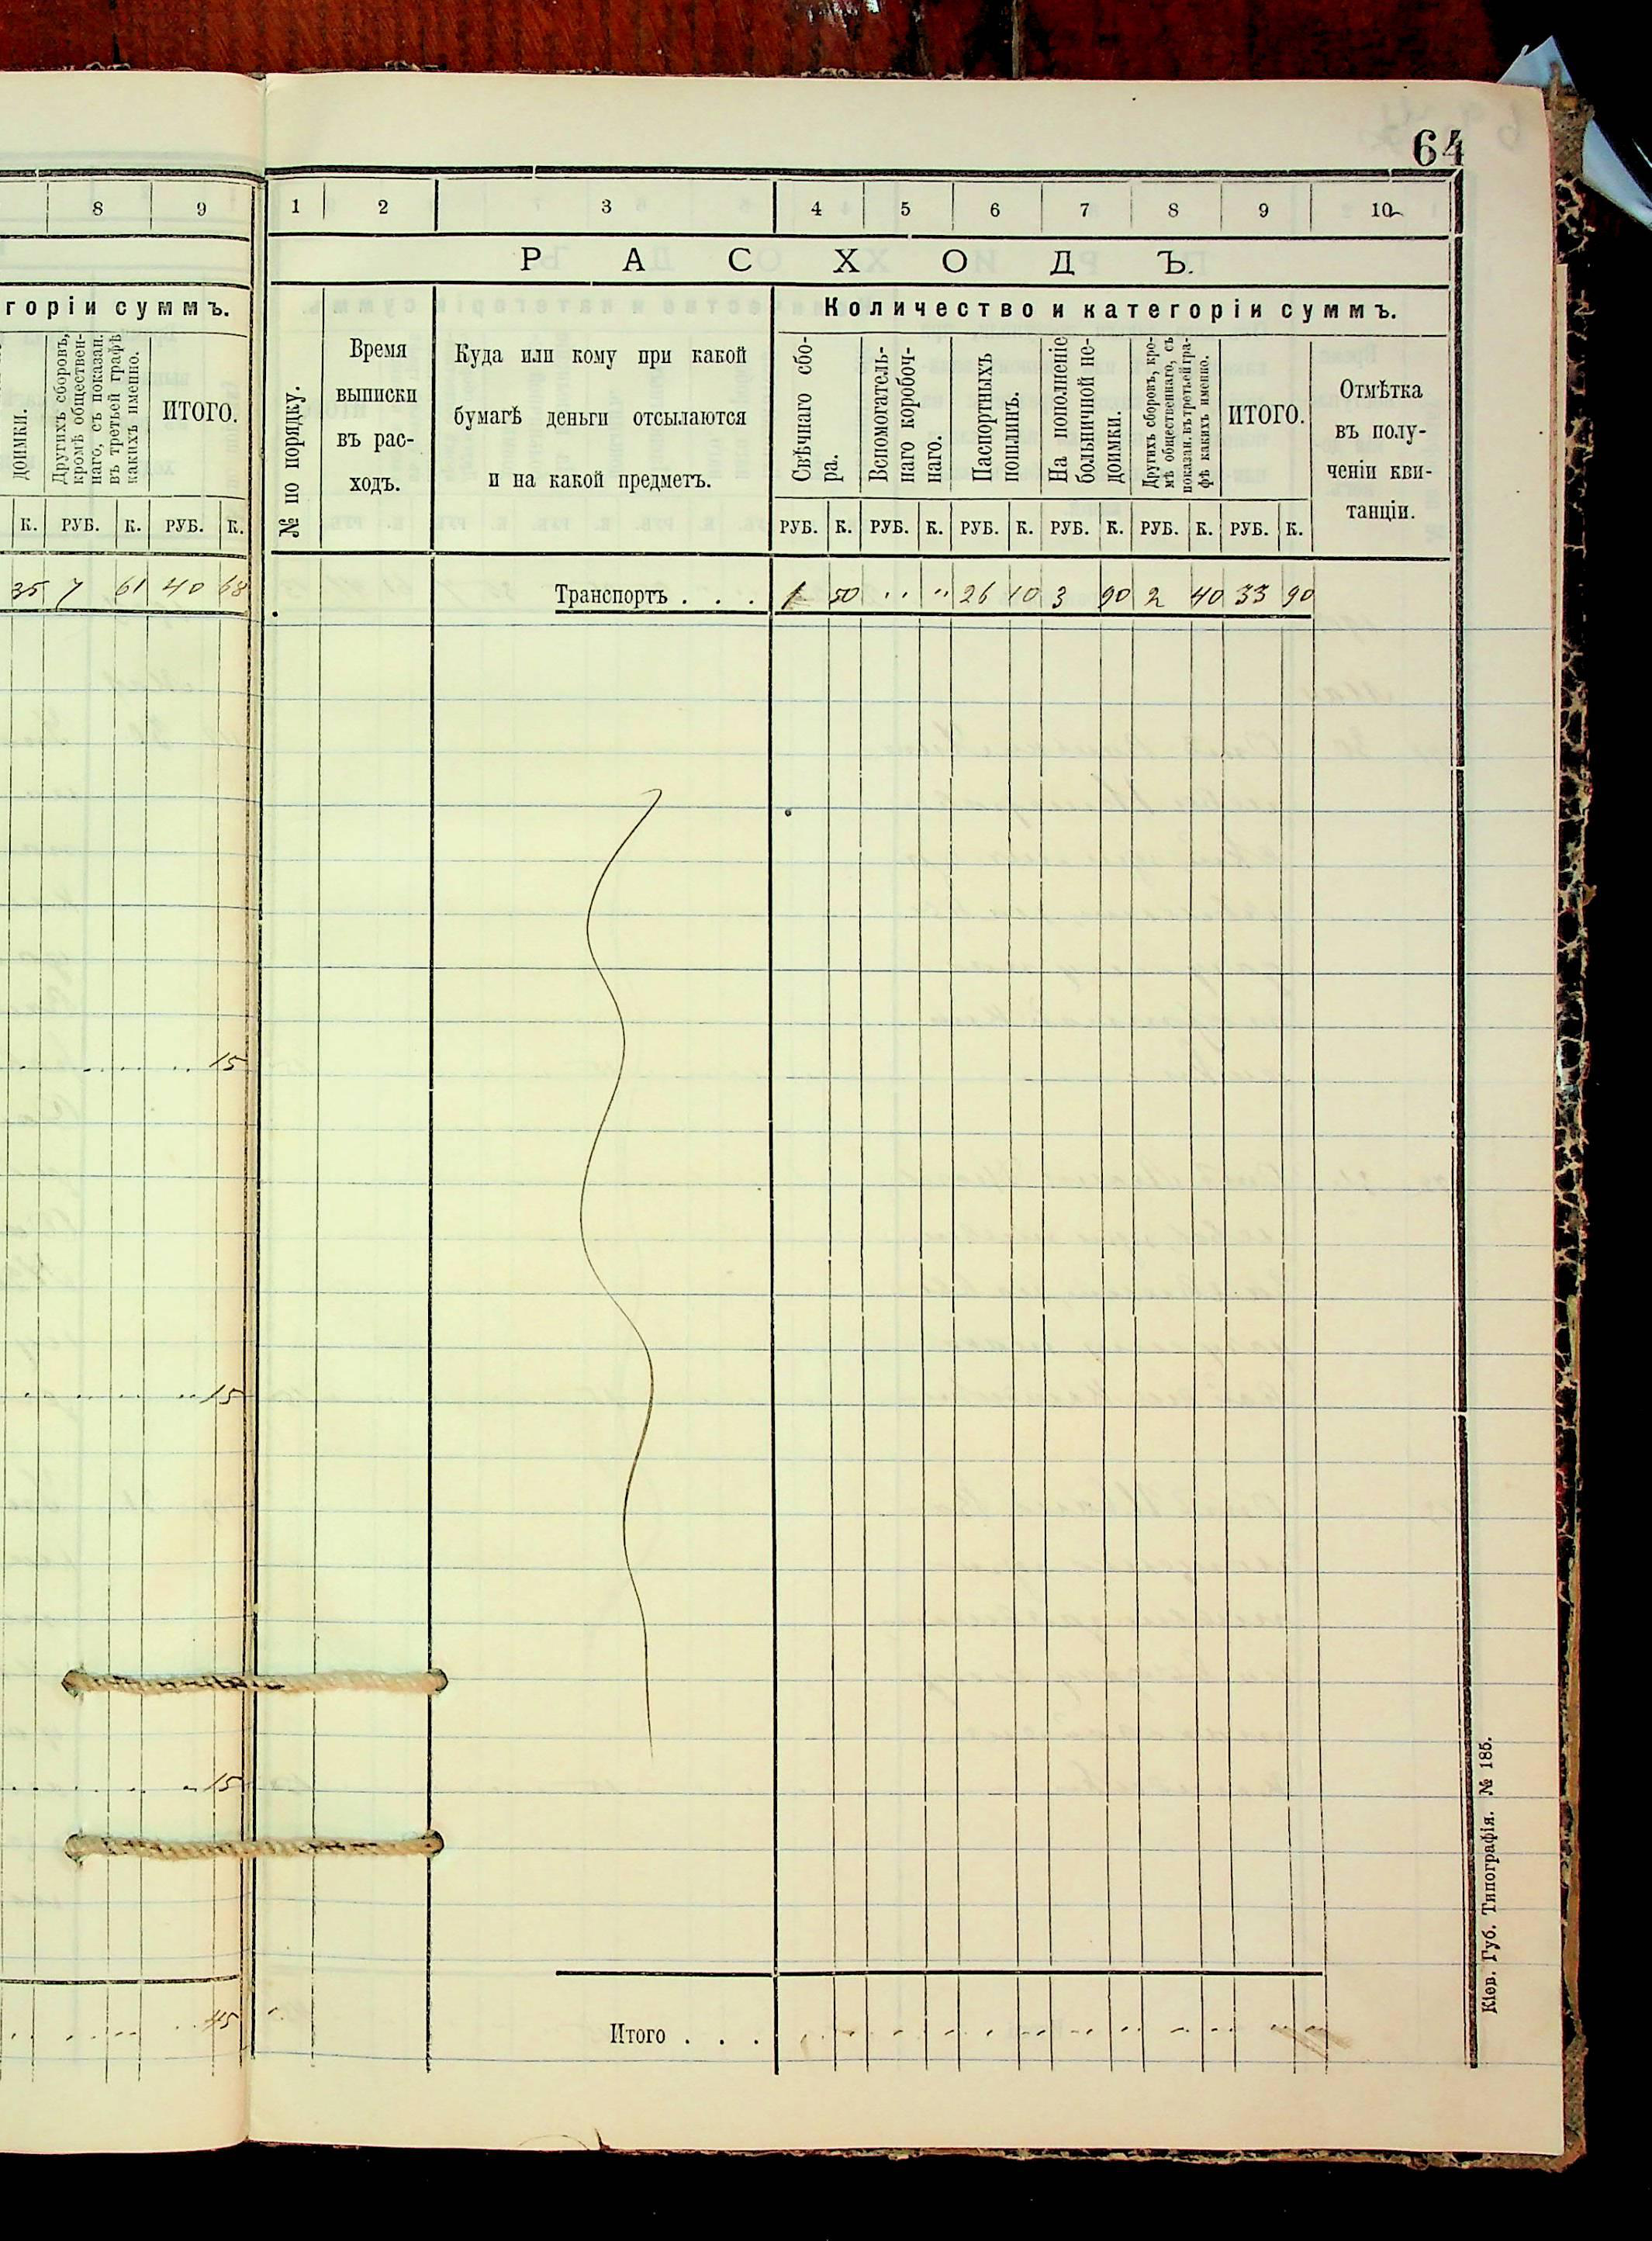 64
8 9
горіи суммъ.
доимки.
Другихъ сборовъ,
кромѣ обществен-
наго, съ показан.
въ третьей графѣ
какихъ именно.
ИТОГО.
К. РУБ. К. РУБ. К.
35 7 61 40 68
15
15
15
45
1 2 3 4 5 6 7 8 9 10
РАСХОДЪ.
№ по порядку.
Время
выписки
въ рас-
ходъ.
Куда или кому при какой
бумагѣ деньги отсылаются
и на какой предметъ.
Количество и категоріи суммъ.
Свѣчнаго сбо-
ра.
Вспомогатель-
наго коробоч-
наго.
Паспортныхъ
пошлинъ.
На пополненіе
больничной не-
доимки.
Другихъ сборовъ, кро-
мѣ общественнаго, съ
показан. въ третьей гра-
фѣ какихъ именно.
ИТОГО.
Отмѣтка
въ полу-
ченіи кви-
танціи.
РУБ. К. РУБ. К. РУБ. К. РУБ. К. РУБ. К. РУБ. К.
Транспортъ . . . 1 50 " " 26 10 3 90 2 40 33 90
Итого . . .
Кіев. Губ. Типографія. № 185.